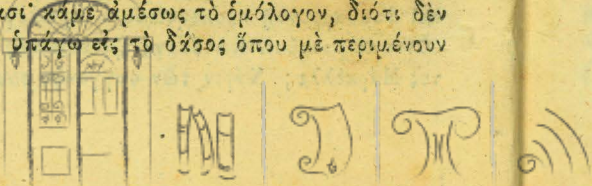 κάμε ἀμέσως τὸ ὁμόλογον, διότι δὲν
ὑπάγω εἰς τὸ δάσος ὅπου μὲ περιμένουν